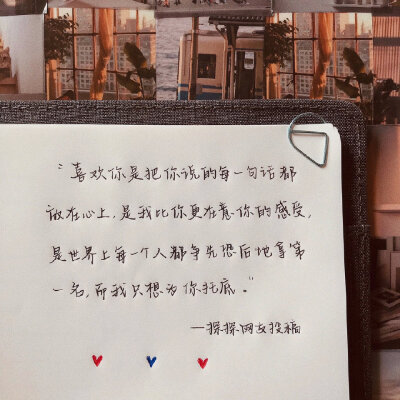 “喜欢你是把你说的每一句话都
放在心上，是我比你更在意你的感受，
是世界上每一个人都争先恐后地拿第
一名，而我只想为你托底。”
——探探网友投稿